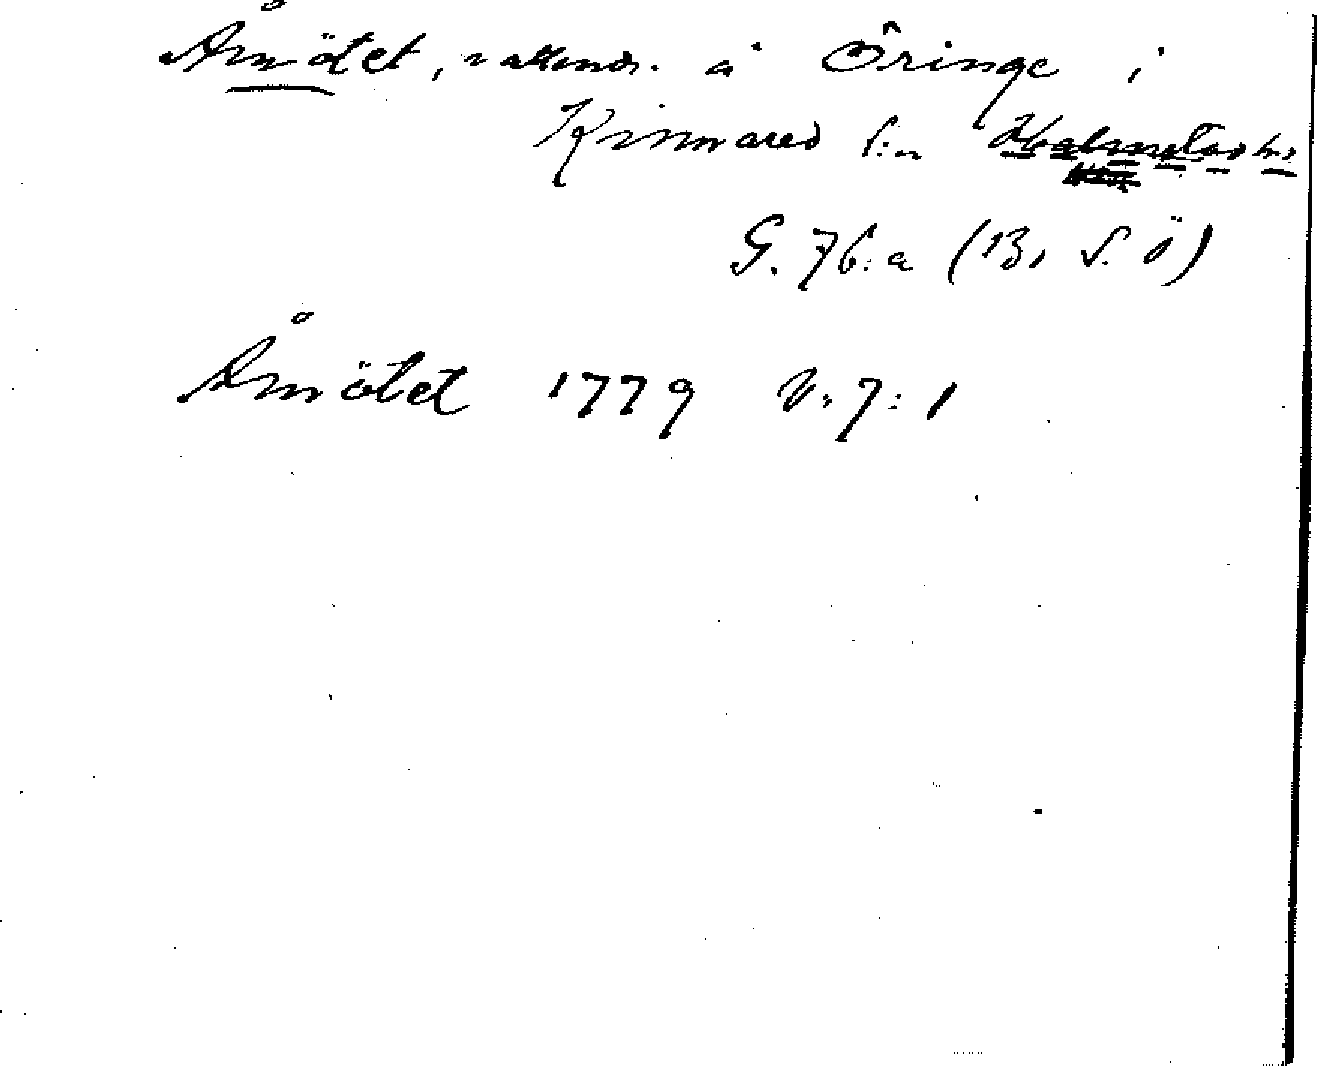 Åmötet, vattendr. å Öringe i
Kinnared s:n Halmstads hd
G. 76:a (B, S. ö)
Åmötet 1779 V. 7:1